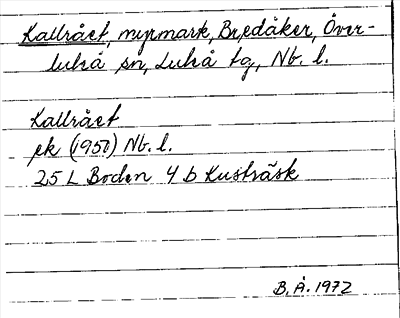 Kallrået, myrmark, Bredåker, Över-
luleå sn, Luleå tg, Nb. l.
Kallrået
ek (1950) Nb. l.
25 L Boden 4 b Kusträsk
B. Å. 1972